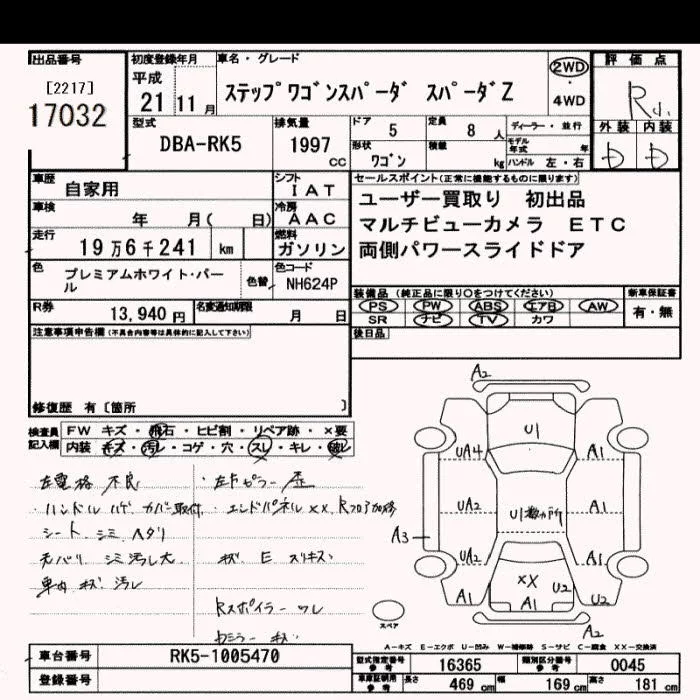 出品番号
[2217]
17032
初度登録年月
平成
21 11 月
車名・グレード
ステップワゴンスパーダ スパーダZ
2WD
・
4WD
評価点
R
外装 内装
D D
型式
DBA-RK5
排気量
1997 cc
ドア 5
定員 8 人
形状 ワゴン
積載 kg
ディーラー・並行
モデル年式 年
ハンドル 左・右
車歴 自家用
シフト IAT
車検 年 月( 日)
冷房 AAC
走行 19万6千241 km
燃料 ガソリン
色 プレミアムホワイト・パール
色替
色コード NH624P
R券 13,940円
名変通知期限 月 日
セールスポイント(正常に機能するものに限ります)
ユーザー買取り 初出品
マルチビューカメラ ETC
両側パワースライドドア
装備品 (純正品に限り○をつけてください)
新車保証書
PS PW ABS エアB AW
有・無
SR ナビ TV カワ
後日品
注意事項申告欄(不具合内容等は具体的に記入して下さい)
修復歴 有〔箇所 〕
検査員記入欄
FW キズ・飛石・ヒビ割・リペア跡・×要
内装 キズ・汚レ・コゲ・穴・スレ・キレ・破レ
左電格 不良
・左Fピラー
・ハンドル ハゲ カバー取付
・エンドパネルXX、Rフロア
シート シミ ヘタリ
天バリ シミ 汚レ大
キズ E スリキズ
車内 キズ 汚レ
Rスポイラー ワレ
A2
U1
UA4 A1
UA2 U1数ヵ所 A1
A3
UA2 A1
XX
U2
A1 A1 U2
A2
スペア
A-キズ E-エクボ U-凹み W-補修跡 S-サビ C-腐食 XX-交換済
車台番号 RK5-1005470
登録番号
型式指定番号 参考 16365
類別区分番号 参考 0045
車庫証明用 参考 長さ 469 cm 幅 169 cm 高さ 181 cm